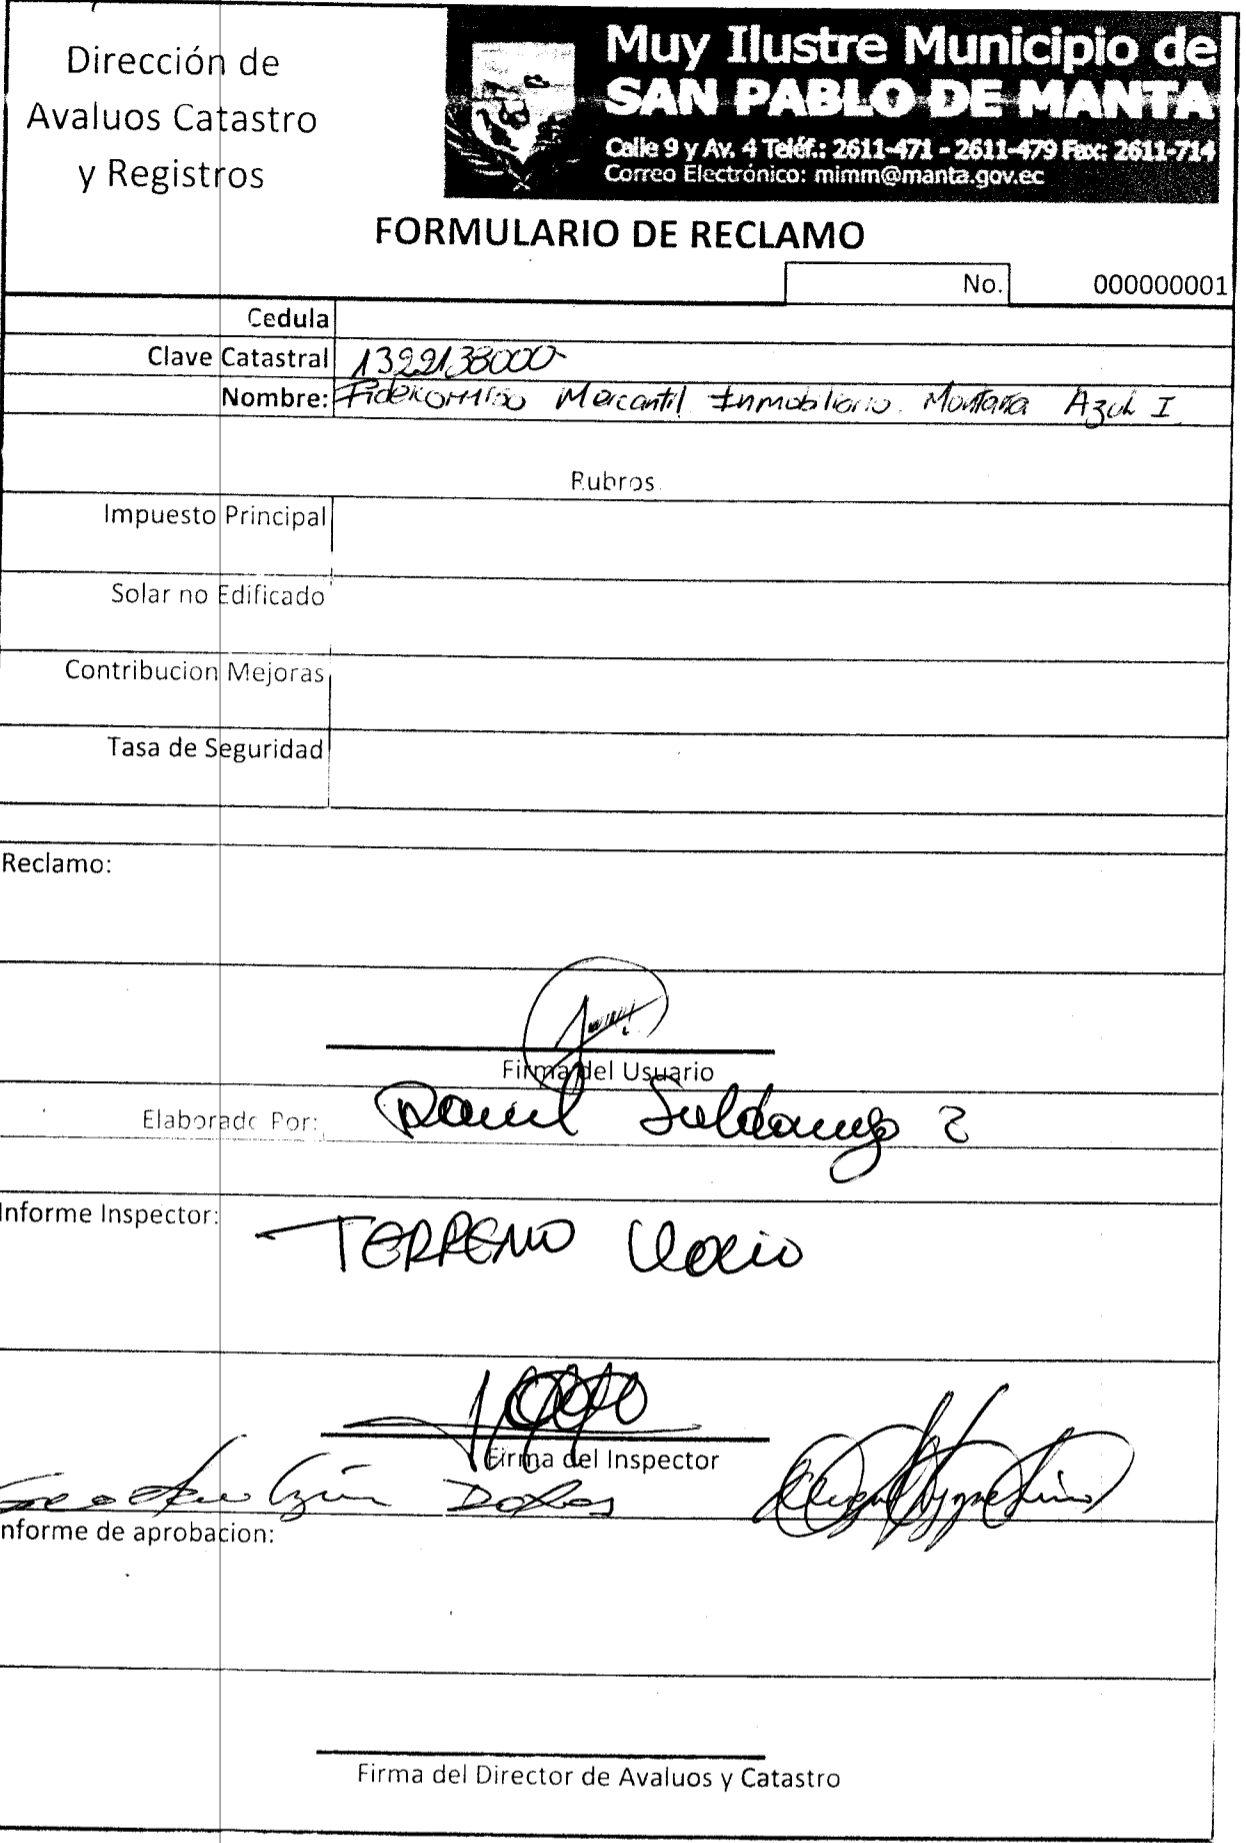 Dirección de
Avaluos Catastro
y Registros
Muy Ilustre Municipio de
SAN PABLO DE MANTA
Calle 9 y Av. 4 Teléf.: 2611-471 - 2611-479 Fax: 2611-714
Correo Electrónico: mimm@manta.gov.ec
FORMULARIO DE RECLAMO
No. 000000001
Cedula
Clave Catastral 1322138000
Nombre: Fideicomiso Mercantil Inmobiliario Montaña Azul I
Rubros
Impuesto Principal
Solar no Edificado
Contribucion Mejoras
Tasa de Seguridad
Reclamo:
Firma del Usuario
Elaborado Por:
Informe Inspector: TERRENO Vacio
Firma del Inspector
nforme de aprobacion:
Firma del Director de Avaluos y Catastro